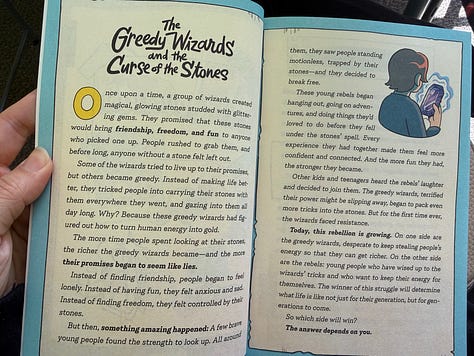 The
Greedy Wizards
and the
Curse of the Stones
Once upon a time, a group of wizards created
magical, glowing stones studded with glitter-
ing gems. They promised that these stones
would bring friendship, freedom, and fun to anyone
who picked one up. People rushed to grab them, and
before long, anyone without a stone felt left out.
Some of the wizards tried to live up to their promises,
but others became greedy. Instead of making life bet-
ter, they tricked people into carrying their stones with
them everywhere they went, and gazing into them all
day long. Why? Because these greedy wizards had fig-
ured out how to turn human energy into gold.
The more time people spent looking at their stones,
the richer the greedy wizards became—and the more
their promises began to seem like lies.
Instead of finding friendship, people began to feel
lonely. Instead of having fun, they felt anxious and sad.
Instead of finding freedom, they felt controlled by their
stones.
But then, something amazing happened: A few brave
young people found the strength to look up. All around
them, they saw people standing
motionless, trapped by their
stones—and they decided to
break free.
These young rebels began
hanging out, going on adven-
tures, and doing things they'd
loved to do before they fell
under the stones' spell. Every
experience they had together made them feel more
confident and connected. And the more fun they had,
the stronger they became.
Other kids and teenagers heard the rebels' laughter
and decided to join them. The greedy wizards, terrified
their power might be slipping away, began to pack even
more tricks into the stones. But for the first time ever,
the wizards faced resistance.
Today, this rebellion is growing. On one side are
the greedy wizards, desperate to keep stealing people's
energy so that they can get richer. On the other side
are the rebels: young people who have wised up to the
wizards' tricks and who want to keep their energy for
themselves. The winner of this struggle will determine
what life is like not just for their generation, but for gen-
erations to come.
So which side will win?
The answer depends on you.